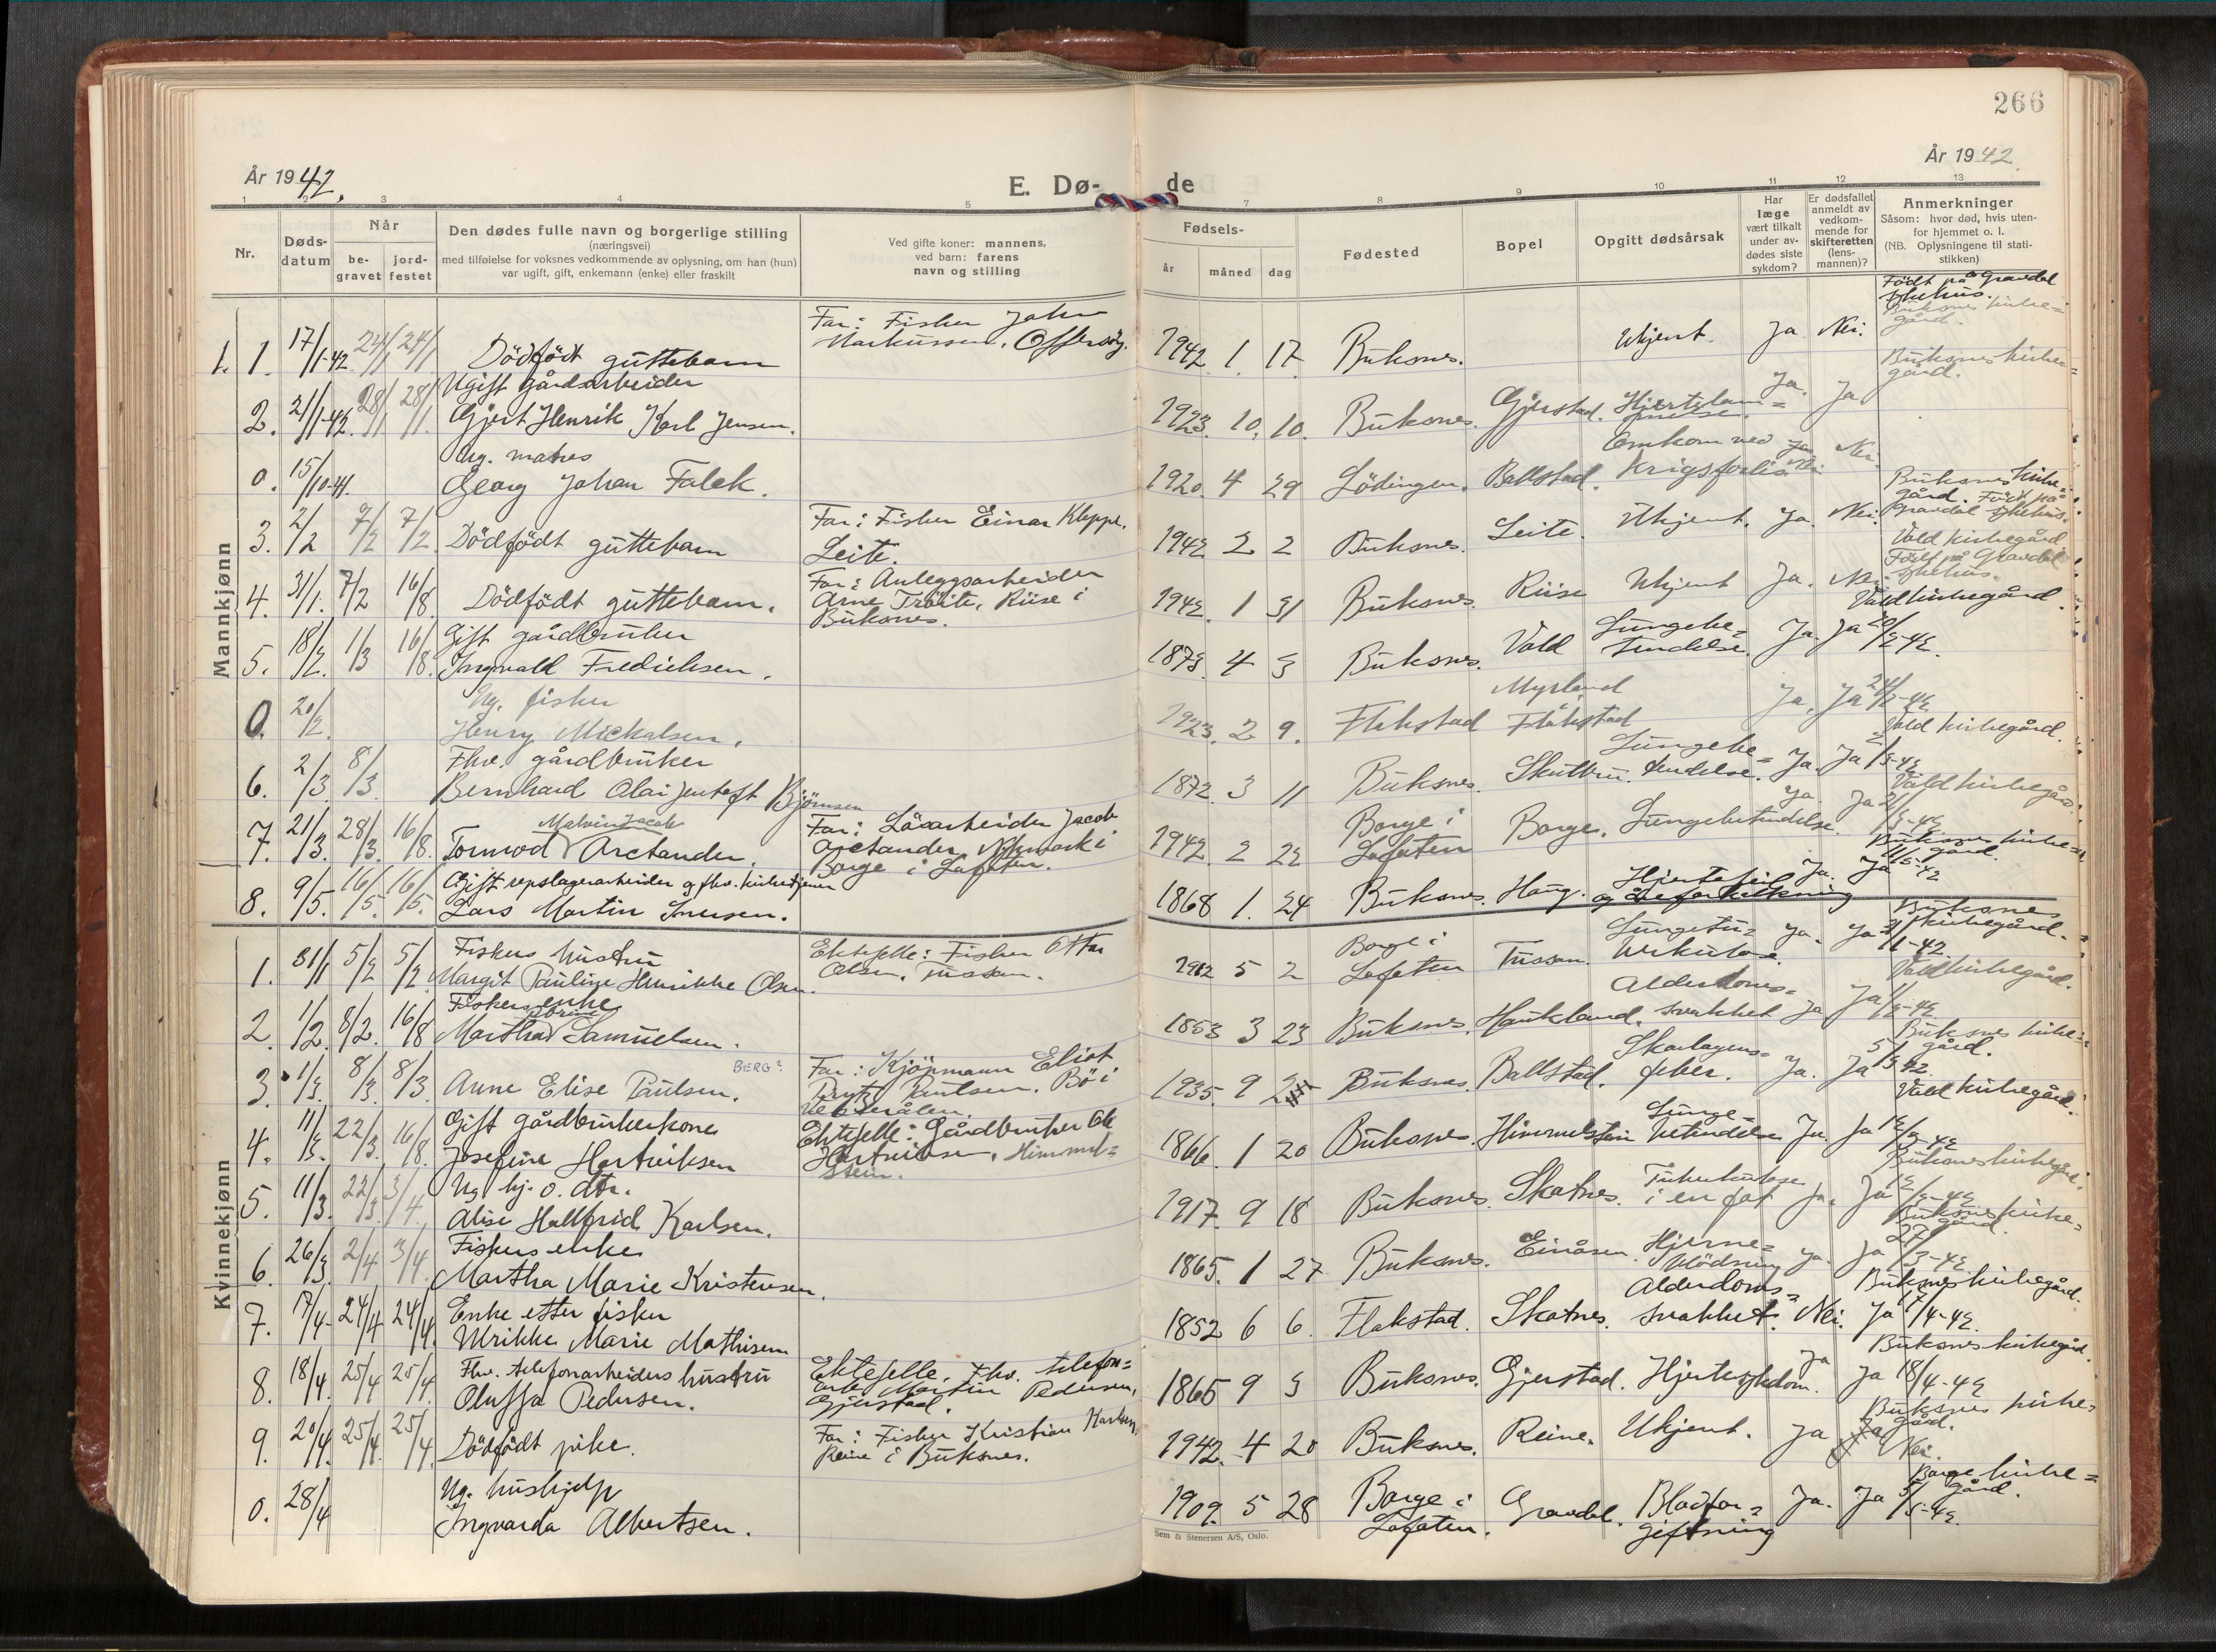 266
År 1942.
År 1942.
E. Dø- de
1 2 3 4 5 7 8 9 10 11 12 13
Nr.
Døds-
datum
Når
be-
gravet
jord-
festet
Den dødes fulle navn og borgerlige stilling
(næringsvei)
med tilføielse for voksnes vedkommende av oplysning, om han (hun)
var ugift, gift, enkemann (enke) eller fraskilt
Ved gifte koner: mannens,
ved barn: farens
navn og stilling
Fødsels-
år måned dag
Fødested
Bopel
Opgitt dødsårsak
Har
læge
vært tilkalt
under av-
dødes siste
sykdom?
Er dødsfallet
anmeldt av
vedkom-
mende for
skifteretten
(lens-
mannen)?
Anmerkninger
Såsom: hvor død, hvis uten-
for hjemmet o. l.
(NB. Oplysningene til stati-
stikken)
Mannkjønn
Født på Gravdal
sykehus.
Buksnes kirke=
gård.
Far: Fisker John
Markussen, Offersøy.
1. 1. 17/1-42 24/1 24/1 Dødfødt guttebarn 1942. 1. 17. Buksnes. Ukjent. Ja Nei.
Buksnes kirke=
gård.
Ugift gårdsarbeider
2. 21/1-42. 28/1 28/1 Gjert Henrik Karl Jensen. 1923. 10. 10. Buksnes. Gjerstad. Hjertelam=
Ja. Ja
Ug. matros
Omkom ved
0. 15/10-41. Georg Johan Falck. 1920. 4 29 Lødingen. Ballstad. Krigsforlis Nei.
Buksnes kirke=
gård. Født på
Gravdal sykehus.
Far: Fisker Einar Kleppe,
Leite.
3. 2/2 7/2 7/2 Dødfødt guttebarn 1942 2 2 Buksnes. Leite. Ukjent. Ja. Nei.
Vold kirkegård
Født på Gravdal
sykehus.
Far: Anleggsarbeider
Arne Trøite, Riise i
Buksnes.
4. 31/1. 7/2 16/8 Dødfødt guttebarn. 1942. 1 31 Buksnes. Riise Ukjent Ja. Nei.
Vold kirkegård.
Gift gårdbruker
5. 18/2. 1/3 16/8. Ingvald Fredriksen. 1873 4 3 Buksnes. Vold Lungebe=
tendelse. Ja. Ja 20/2-42.
Ug. fisker
0. 20/2. Henry Mickalsen. 1923. 2 9. Flakstad Myrland
Flakstad Ja. Ja 24/2-42
Vold kirkegård.
Fhv. gårdbruker
6. 2/3 8/3. Bernhard Olai Jentoft Bjørnsen 1872. 3 11 Buksnes. Lungebe=
tendelse. Ja. Ja 2/3-42
Vold kirkegård.
Malvin Jacob
7. 21/3. 28/3. 16/8. Tormod Arctander. Far: Løsarbeider Jacob
Arctander,
Borge i Lofoten.
1942. 2 22 Borge i
Lofoten Borge. Lungebetendelse. Ja. Ja
Buksnes kirke=
gård.
Gift repslagerarbeider og fhv. kirketjener
8. 9/5. 16/5. 16/5. Lars Martin Iversen. 1868 1. 24 Buksnes. Haug. Hjertefeil
og åreforkalkning Ja. Ja 11/5-42
Kvinnekjønn
Buksnes
kirkegård.
Fiskers hustru
1. 31/1 5/2 5/2 Margit Pauline Henrikke Olsen. Ektefelle: Fisker Ottar
Olsen, Tussan.
1912 5 2 Borge i
Lofoten Tussan. Lungetu=
berkulose. Ja. Ja
Vold kirkegård.
Fiskers enke
2. 1/2. 8/2. 16/8 Martha Samuelsen. 1853 3 23 Buksnes. Haukland. Alderdoms=
svakhet Ja Ja
Buksnes kirke=
gård.
BERG?
3. 1/3. 8/3. 8/3 Anne Elise Paulsen. Far: Kjøpmann Eliot
Prytz Paulsen. Bø i
Vesterålen.
1935. 9 Buksnes. Ballstad. Skarlagens=
feber. Ja. Ja 5/3-42.
Vold kirkegård.
Gift gårdbrukerkone
4. 11/3. 22/3. 16/8 Josefine Hartviksen Ektefelle: Gårdbruker Ole
Hartviksen, Himmel=
stein.
1866. 1 20 Buksnes. Himmelstein Lunge=
betendelse Ja. Ja 12/3-42
Buksnes kirkegård.
Ug. hj. o. dtr.
5. 11/3. 22/3 3/4. Alise Hallfrid Karlsen. 1917. 9 18 Buksnes. Skotnes. Tuberkulose
i en fot Ja. Ja 12/3-42
Buksnes kirke=
gård.
Fiskers enke
6. 26/3. 2/4 3/4. Martha Marie Kristensen. 1865. 1 27 Buksnes. Einåsen. Hjerne=
blødning Ja. Ja 27/3-42
Buksnes kirkegård.
Enke etter fisker
7. 17/4. 24/4 24/4. Ulrikke Marie Mathisen 1852 6 6. Flakstad. Skotnes. Alderdoms=
svakhet. Nei. Ja 17/4-42.
Buksnes kirkegård.
Fhv. telefonarbeiders hustru
8. 18/4. 25/4 25/4. Oluffa Pedersen. Ektefelle, Fhv. telefon=
arb. Martin Pedersen,
Gjerstad.
1865 9 3 Buksnes. Gjerstad. Hjertesykdom. Ja Ja 18/4-42
Buksnes kirke=
gård.
9. 20/4. 25/4. 25/4. Dødfødt pike. Far: Fisker Kristian Karlsen,
Reine i Buksnes.
1942. 4 20 Buksnes. Reine. Ukjent. Ja Nei.
Borge kirke=
gård.
Ug. hushjelp
0. 28/4 Ingvarda Albertsen. 1909. 5 28 Borge i
Lofoten. Gravdal. Blodfor=
giftning Ja. Ja 5/5-42.
Sem & Stenersen A/S, Oslo.